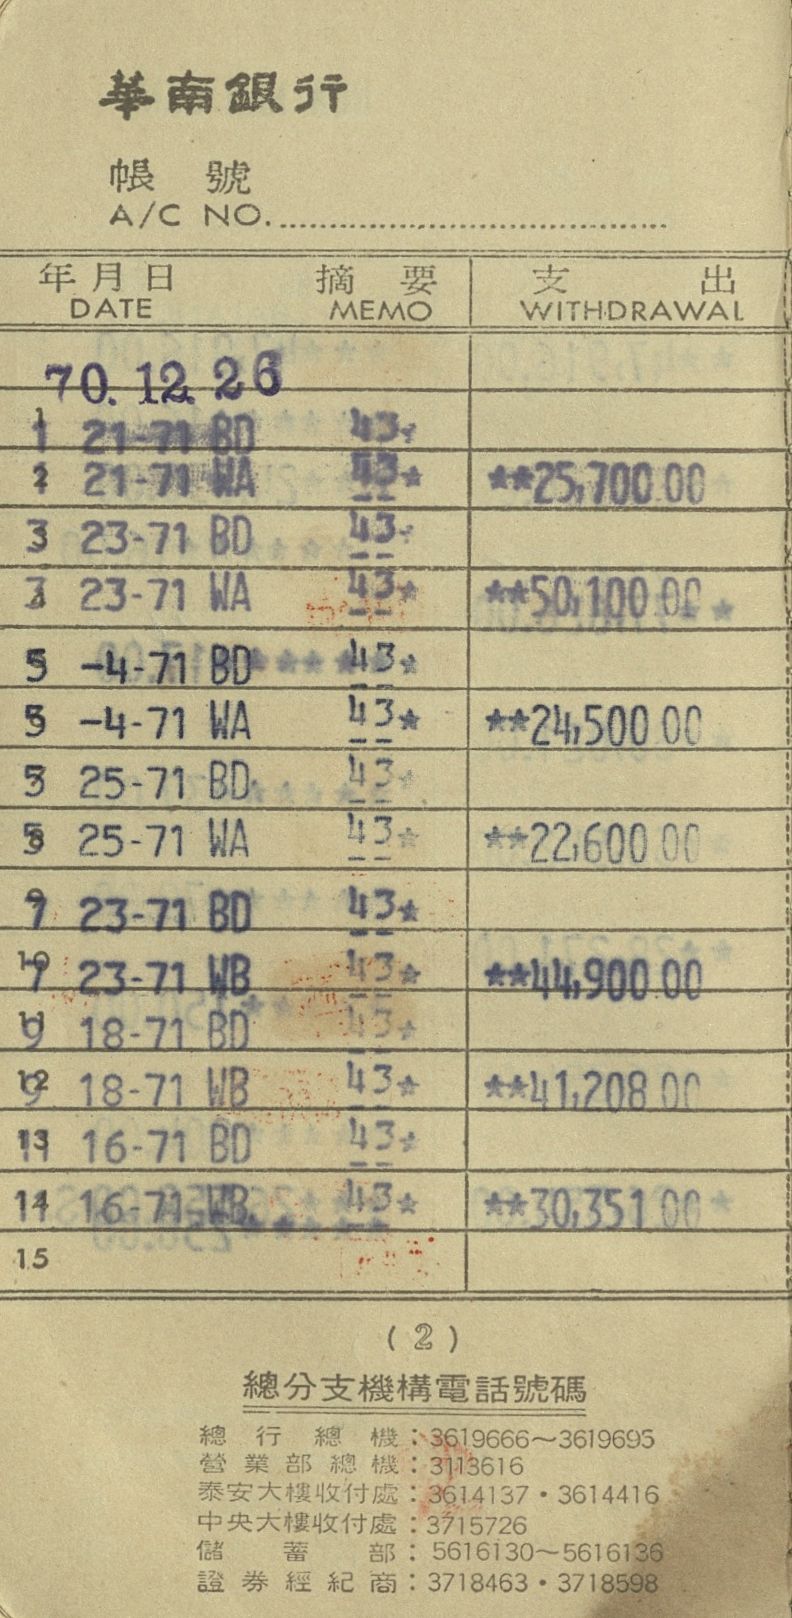 華南銀行
帳 號
A/C NO.
年月日 摘要 支出
DATE MEMO WITHDRAWAL
70.12.26
1 21-71 BD 43
21-71 WA 43★ ★★25,700.00
3 23-71 BD 43
3 23-71 WA 43★ ★★50,100.00
5 -4-71 BD 43★
5 -4-71 WA 43★ ★★24,500.00
5 25-71 BD 43★
5 25-71 WA 43★ ★★22,600.00
7 23-71 BD 43★
7 23-71 WB 43★ ★★44,900.00
9 18-71 BD 43★
9 18-71 WB 43★ ★★41,208.00
11 16-71 BD 43★
11 16-71 WB 43★ ★★30,351.00
15
(2)
總分支機構電話號碼
總行總機:3619666~3619695
營業部總機:3113616
泰安大樓收付處:3614137・3614416
中央大樓收付處:3715726
儲蓄部:5616130~5616136
證券經紀商:3718463・3718598